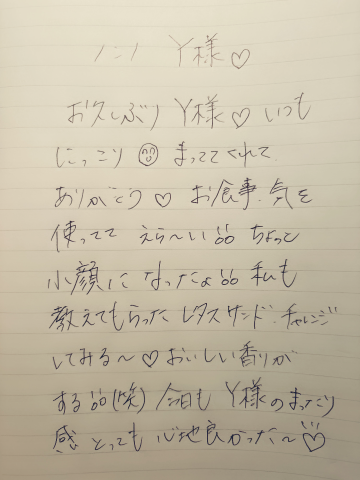 Y様♡
お久しぶり Y様♡ いつも
にっこり まっててくれて
ありがとう♡ お食事、気を
使ってて えら〜い!! ちょっと
小顔に なったよ!! 私も
教えてもらった レタスサンド、チャレンジ
してみる〜♡ おいしい香りが
する!! (笑) 今日も Y様のまったり
感 とっても 心地良かった〜♡